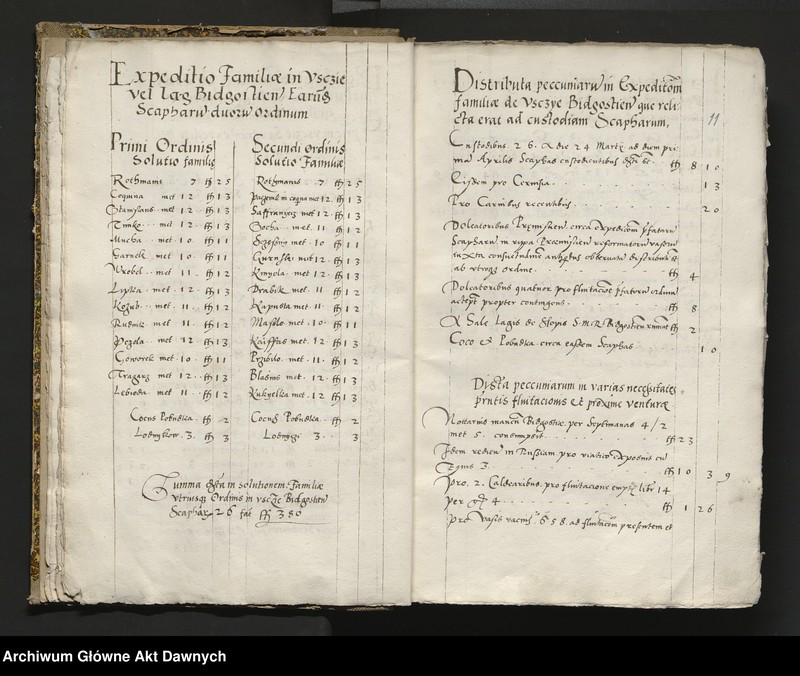 Expeditio Familiæ in Vsczie
vel lag Bidgostien Earūq
Scapharū duorū ordinum
Primi Ordinis
Solutio familię
Rothmani 7 ffl 25
Coquina met 12 ffl 13
Stanislaus met 12 ffl 13
Timko met 12 ffl 13
Mucha met 10 ffl 11
Garnek met 10 ffl 11
Wrobel met 11 ffl 12
Lypka met 12 ffl 13
Kozub met 11 ffl 12
Rudnik met 11 ffl 12
Pczola met 12 ffl 13
Goworek met 10 ffl 11
Tragarz met 12 ffl 13
Lebioda met 11 ffl 12
Cocus Pobudka ffl 2
Lodnykow 3 ffl 3
Secundi Ordinis
Solutio Familiæ
Rothmanis 7 ffl 25
in coqua met 12 ffl 13
Saffraniecz met 12 ffl 13
Socha met 11 ffl 12
met 10 ffl 11
met 12 ffl 13
Kinyola met 12 ffl 13
Drabik met 11 ffl 12
Kapusta met 11 ffl 12
Maslo met 10 ffl 11
Kaiffas met 12 ffl 13
Przibilo met 11 ffl 12
Blasius met 12 ffl 13
Kukyelka met 12 ffl 13
Cocus Pobudka ffl 2
Lodnyzi 3 3
Summa in solutionem Familiæ
vtriusq Ordinis in vsczie Bidgostien
Scaphar 26 fac ffl 380
11
Distributa peccuniarū in Expeditōm
familiæ de Vsczye Bidgostien que reli
cta erat ad custodiam Scapharum,
Custodibus 26 a die 24 Martii ad diem pri
mā Aprilis Scaphas custodientibus ffl 8 10
Eisdem pro Cervisia 13
Pro Carnibus recentibus 20
Doleatoribus Premislien circa expeditiōm
Scapharū in rippa Premislien reformatorū vasorū
iuxta consuetudinē observatā
ab vtroq ordine ffl 4
Doleatoribus quatuor pro fluitatione ordinū
accept propter contingens ffl 8
A Sale Lagis de Slopis S.M.R. Bidgostien ffl 2
Coco et Pobudka circa easdem Scaphas 10
Distā peccuniarum in varias necessitates
prntis fluitationis et proxime venturæ
Nottario manen Bidgostie per Septimanas 4/2
met 5 consumpsit ffl 23
Idem redien in Russiam pro viatico exposuis cū
Equis 3 ffl 10 3 9
Pro 2 Caldearibus pro fluitatione empt libr 14
per 4 ffl 1 26
Pro Vasis vacuis 658 ad fluitatōm presentem et
Archiwum Główne Akt Dawnych